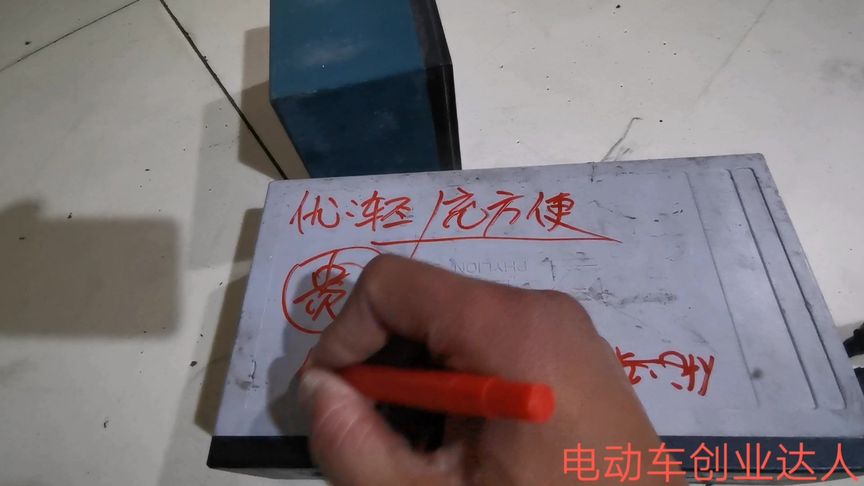 优:轻/充方便
贵
PHYLION
电动车创业达人